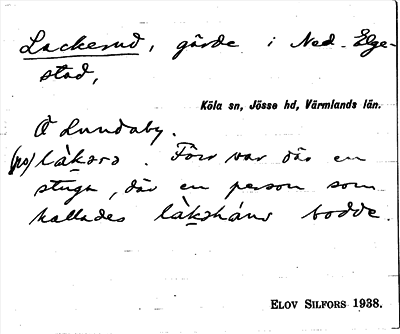 Lackerud, gärde i Ned. Elge-
stad,
Köla sn, Jösse hd, Värmlands län.
Ö Lundaby.
(på) làkərə. Förr var där en
stuga, där en person som
kallades làkəhánս bodde.
ELOV SILFORS 1938.